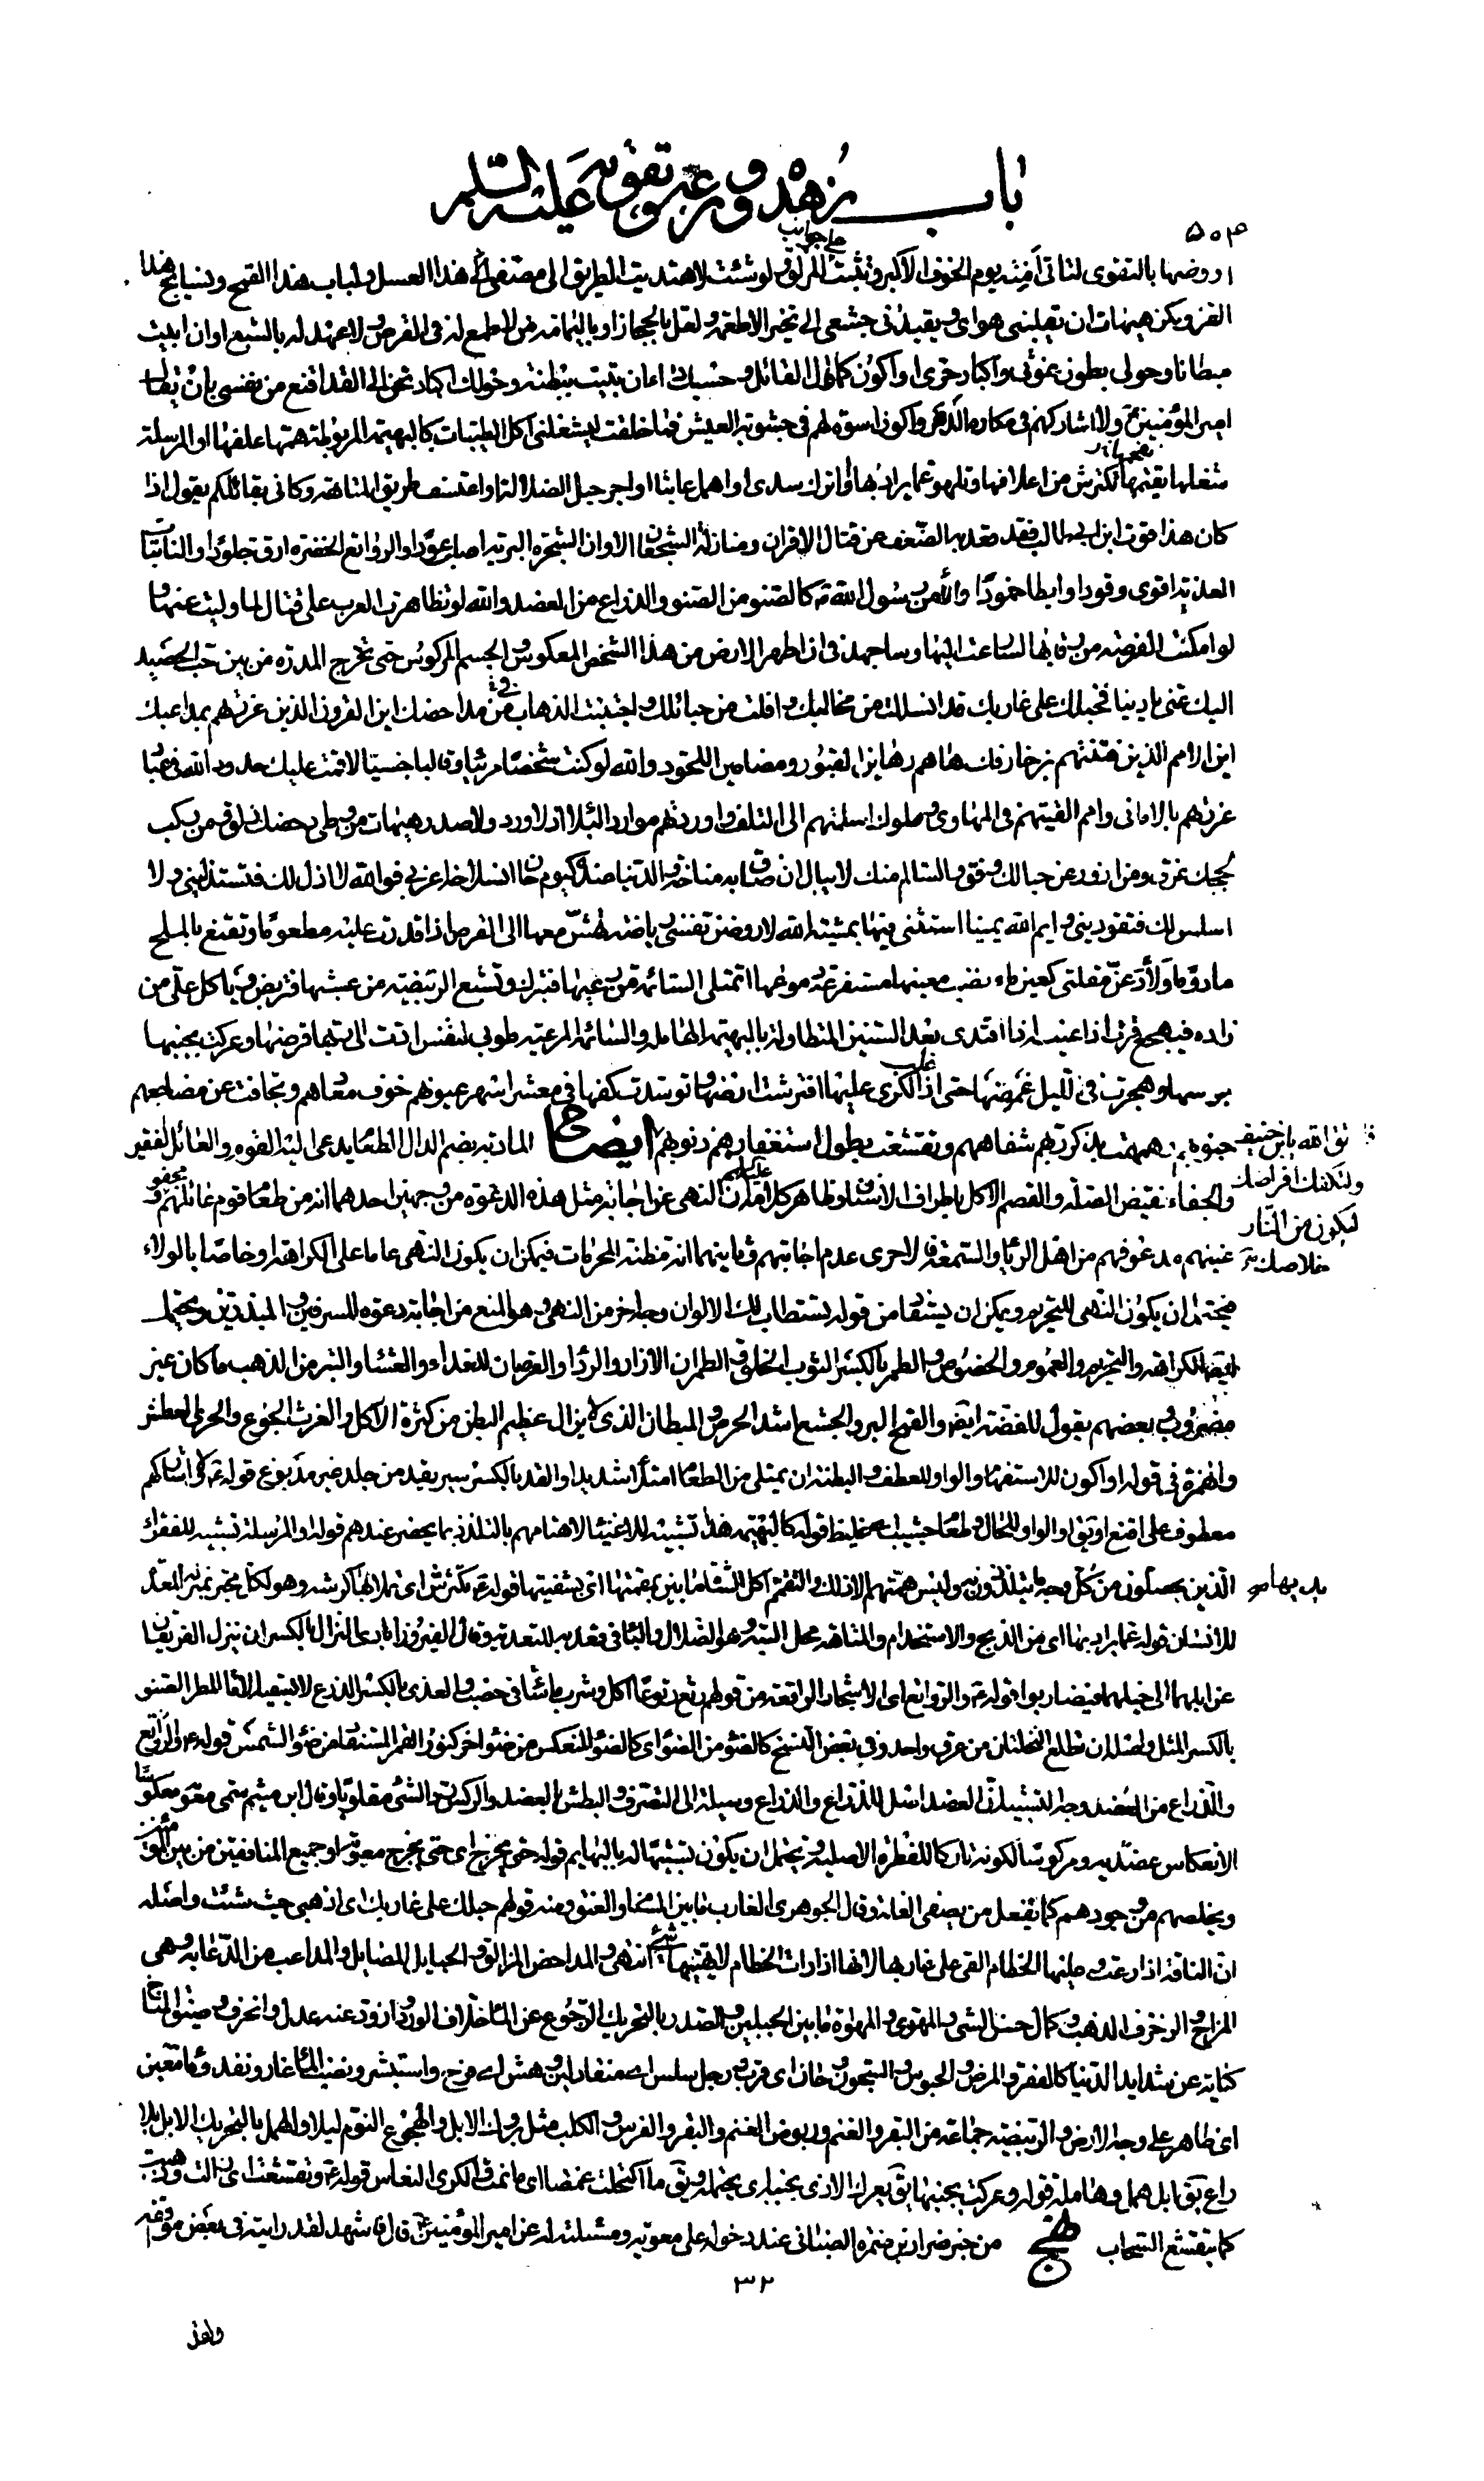 باب زهده و تقوه و ورعه عليه السلم
٥٠٣
اروضها بالتقوى لتاتى امنة يوم الخوف الاكبر و تثبت على جوانب المزلق و لو شئت لاهتديت الطريق الى مصفى هذا العسل و لباب هذا القمح و نسايج هذا
القز ولكن هيهات ان يغلبنى هواى و يقودنى جشعى الى تخير الاطعمة و لعل بالحجاز او باليمامة من لا طمع له فى القرص و لا عهد له بالشبع او ان ابيت
مبطانا و حولى بطون غرثى و اكباد حرى او اكون كما قال القائل و حسبك داء ان تبيت ببطنة و حولك اكباد تحن الى القد ااقنع من نفسى بان يقال
امير المؤمنين و لا اشاركهم فى مكاره الدهر و اكون اسوة لهم فى جشوبة العيش فما خلقت ليشغلنى اكل الطيبات كالبهيمة المربوطة همها علفها او المرسلة
شغلها تقممها تكترش من اعلافها و تلهو عما يراد بها او اترك سدى او اهمل عابثا او اجر حبل الضلالة او اعتسف طريق المتاهة و كانى بقائلكم يقول اذا
كان هذا قوت ابن ابيطالب فقد قعد به الضعف عن قتال الاقران و منازلة الشجعان الا و ان الشجرة البرية اصلب عودا و الروائع الخضرة ارق جلودا و النابتات
العذية اقوى وقودا و ابطا خمودا و انا من رسول الله كالصنو من الصنو و الذراع من العضد و الله لو تظاهرت العرب على قتالى لما وليت عنها و
لو امكنت الفرصة من رقابها لسارعت اليها و ساجهد فى ان اطهر الارض من هذا الشخص المعكوس و الجسم المركوس حتى تخرج المدرة من بين حب الحصيد
اليك عنى يا دنيا فحبلك على غاربك قد انسللت من مخالبك و افلت من حبائلك و اجتنبت الذهاب فى مداحضك اين القرون الذين غررتهم بمداعبك
اين الامم الذين فتنتهم بزخارفك ها هم رهاين القبور و مضامين اللحود و الله لو كنت شخصا مرئيا و قالبا حسيا لاقمت عليك حدود الله فى عباد
غررتهم بالامانى و امم القيتهم فى المهاوى و ملوك اسلمتهم الى التلف و اوردتهم موارد البلاء اذ لا ورد و لا صدر هيهات من وطى دحضك زلق و من ركب
لججك غرق و من ازور عن حبالك وفق و السالم منك لا يبالى ان ضاق به مناخه و الدنيا عنده كيوم حان انسلاخه اعزبى فوالله لا اذل لك فتستذلينى و لا
اسلس لك فتقودينى و ايم الله يمينا استثنى فيها بمشية الله لاروضن نفسى رياضة تهش معها الى القرص اذا قدرت عليه مطعوما و تقنع بالملح
مادوما و لادعن مقلتى كعين ماء نضب معينها مستفرغة دموعها اتمتلى السائمة من رعيها فتبرك و تشبع الربيضة من عشبها فتربض و ياكل على من
زاده فيهجع قرت اذا عينه اذا اقتدى بعد السنين المتطاولة بالبهيمة الهاملة و السائمة المرعية طوبى لنفس ادت الى ربها فرضها و عركت بجنبها
بوسها و هجرت فى الليل غمضها حتى اذا غلب الكرى عليها افترشت ارضها و توسدت كفها فى معشر اسهر عيونهم خوف معادهم و تجافت عن مضاجعهم
جنوبهم و همهمت بذكر ربهم شفاههم و تقشعت بطول استغفارهم ذنوبهم ايضاح المادبة بضم الدال الطعام يدعى اليه القوم و العائل الفقير
فاتق الله يابن حنيف
ولتكفك اقراصك
ليكون من النار
خلاصك
و الجفاء نقيض الصلة و القضم الاكل باطراف الاسنان و ظاهر كلامه عليه السلم ان النهى عن اجابة مثل هذه الدعوة من وجهين احدهما انه من طعام قوم عائلهم مجفو
غنيهم مدعو فهم من اهل الريا و السمعة فالاحرى عدم اجابتهم و ثانيهما انه مظنة المحرمات فيمكن ان يكون النهى عاما على الكراهة او خاصا بالولاة
فيحتمل ان يكون النهى للتحريم و يمكن ان يستفاد من قوله يستطاب لك الالوان وجه اخر من النهى و هو المنع من اجابة دعوة المسرفين و المبذرين و يحتمل
ايضا الكراهة و التحريم و العموم و الخصوص و الطمر بالكسر الثوب الخلق و الطمران الازار و الردا و القرصان للغداء و العشاء و التبر من الذهب ما كان غير
مضروب و بعضهم يقول للفضة ايضا و القمح البر و الجشع اشد الحرص و المبطان الذى لا يزال عظيم البطن من كثرة الاكل و الغرث الجوع و الحرى العطش
و الهمزة فى قوله او اكون للاستفهام و الواو للعطف و البطنة ان يمتلى من الطعام امتلاء شديدا و القد بالكسر سير يقد من جلد غير مدبوغ قوله و لا اشاركهم
معطوف على اقنع او يقال و الواو للحال و طعام جشيب اى غليظ قوله كالبهيمة هذا تشبيه للاغنياء لاهتمامهم بالتلذذ بما يحضر عندهم قوله او المرسلة تشبيه للفقراء
الذين يحصلون من كل وجه ما يتلذذون به و ليس همتهم الا ذلك و التقمم اكل الشاة ما بين يديها بمقمتها اى بشفتيها قوله تكترش اى تملأ بها كرشه و هو لكل مجتر بمنزلة المعدة
للانسان قوله عما يراد بها اى من الذبح و الاستخدام و المتاهة محل التيه و هو الضلال و الباء فى قعد به للتعدية و قال الفيروزابادى النزال بالكسر ان ينزل الفريقان
عن ابلهما الى خيلهما فيضاربوا قوله و الروائع اى الاشجار الراتعة من قولهم رتع رتوعا اكل و شرب ما شاء فى خصب و العذى بالكسر الزرع لا يسقيه الا ماء المطر الصنو
بالكسر المثل و اصله ان تطلع النخلتان من عرق واحد و فى بعض النسخ كالضوء من الضوء اى كالضوء المنعكس من ضوء اخر كنور القمر المستفاد من ضوء الشمس قوله
و الذراع من العضد وجه التشبيه ان العضد اصل للذراع و الذراع وسيلة الى التصرف و البطش بالعضد و الركس رد الشىء مقلوبا و قال ابن ميثم سمى معوية معكوسا
الانعكاس عقيدته و مركوسا لكونه تاركا للفطرة الاصلية و يحتمل ان يكون تشبيها له بالبهايم قوله حتى تخرج اى حتى يخرج معوية او جميع المنافقين من بين المؤمنين
و يخلصهم من وجودهم كما يفعل من يصفى الغلة و قال الجوهرى الغارب ما بين السنام و العنق و منه قولهم حبلك على غاربك اى اذهبى حيث شئت و اصله
ان الناقة اذا رعت و عليها الخطام القى على غاربها لانها اذا رات الخطام لا يهنيها شىء انتهى و المداحض المزالق و الحبايل المصايد و المداعب من الدعابة و هى
المزاح و الزخرف الذهب و كمال حسن الشىء و المهوى و المهواة ما بين الجبلين و الصدر بالتحريك الرجوع عن الماء خلاف الورد و ازور عنه عدل و انحرف و ضيق المناخ
كناية عن شدايد الدنيا كالفقر و المرض و الحبوس و السجون و حان اى قرب و رجل سلس اى منقاد لين و هش اى فرح و استبشر و نضب الماء غار و نفد و ماء معين
اى ظاهر على وجه الارض و الربيضة جماعة من البقر و الغنم و ربوض الغنم و البقر و الفرس و الكلب مثل بروك الابل و الهجوع النوم ليلا و الهمل بالتحريك الابل بلا
راع يق ابل همل و هاملة قوله و عركت بجنبها يق يعرك الاذى بجنبه اى يحتمله و يق ما اكتحلت غمضا اى ما نمت و الكرى النعاس قوله و تقشعت اى زالت و ذهبت
كما يتقشع السحاب نهج من خبر ضرار بن ضمرة الضبابى عند دخوله على معوية و مسئلته له عن امير المؤمنين قال فاشهد لقد رايته فى بعض مواقفه
٣٢
وقد